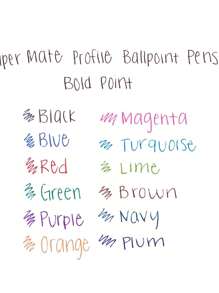 per Mate Profile Ballpoint Pens
Bold Point
Black
Blue
Red
Green
Purple
Orange
Magenta
Turquoise
Lime
Brown
Navy
Plum